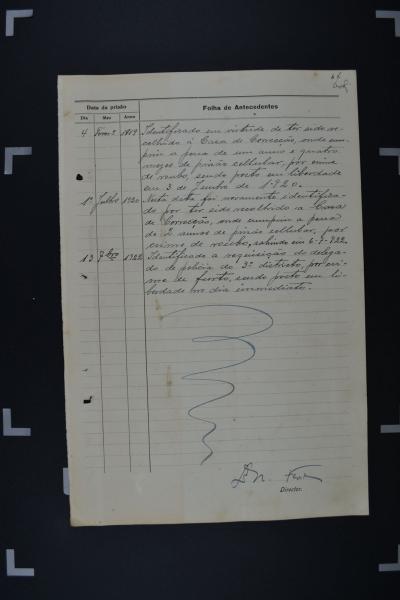 Data da prisão
Folha de Antecedentes
Dia Mez Anno
4 1919 Identificado em virtude de ter sido re-
colhido á Casa de Correcção, onde cum-
priu a pena de um anno e quatro
mezes de prisão cellular, por crime
de roubo, sendo posto em liberdade
em 3 de Junho de 1920.
1º Julho 1920 Nesta data foi novamente identifica-
do por ter sido recolhido a Casa
de Correcção, onde cumpriu a pena
de 2 annos de prisão cellular, por
crime de roubo, sahindo em 6-7-922.
13 7bro 1922 Identificado a requisição do delega-
do de policia do 3º districto, por cri-
me de furto, sendo posto em li-
berdade no dia immediato.
Director.